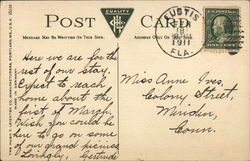 QUALITY
POST CARD
MESSAGE MAY BE WRITTEN ON THIS SIDE.
ADDRESS ONLY ON THIS SIDE.
EUSTIS
1911
FLA.
Here we are for the
rest of our stay.
Expect to reach
home about the
first of March.
Wish you could be
here to go on some
of our grand picnics
Lovingly,
Gertrude
Miss Anne Ives,
Colony Street,
Meriden,
Conn.
THE HUGH C. LEIGHTON CO., MANUFACTURERS, PORTLAND, ME., U.S.A.